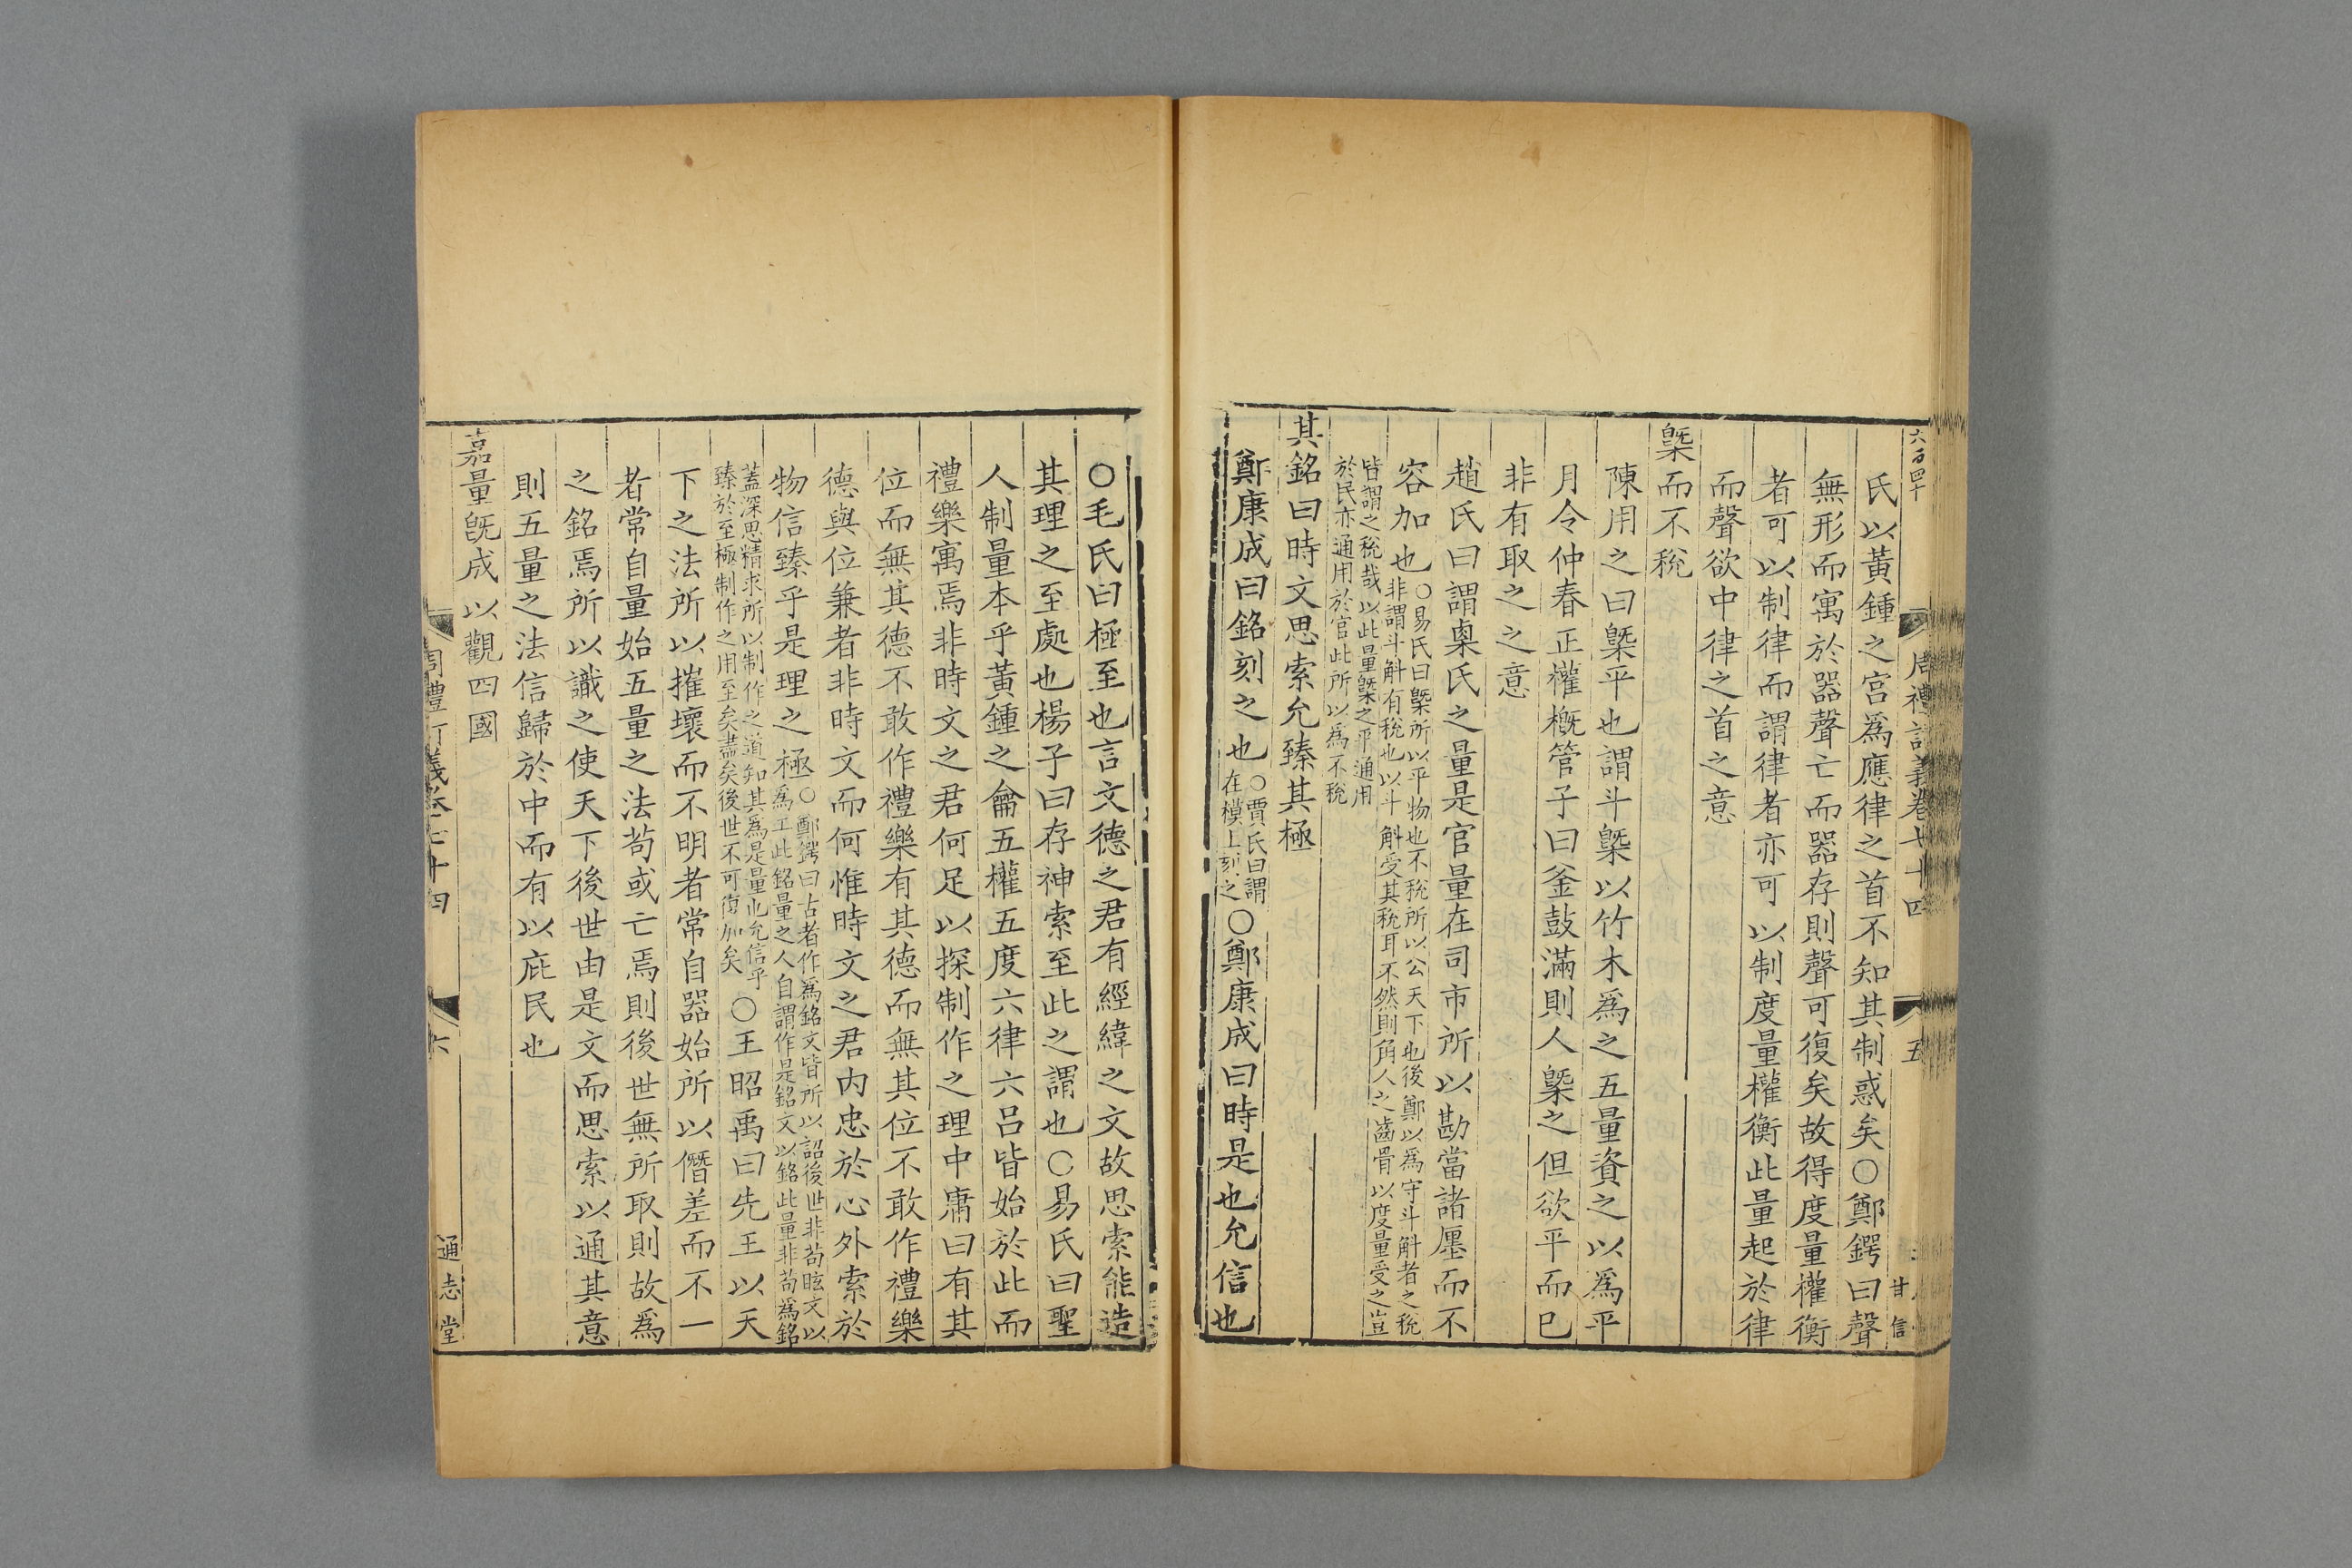 六百四十
周禮訂義卷七十四
五
甘信
氏以黃鍾之宮爲應律之首不知其制惑矣○鄭鍔曰聲
無形而寓於器聲亡而器存則聲可復矣故得度量權衡
者可以制律而謂律者亦可以制度量權衡此量起於律
而聲欲中律之首之意
槩而不稅
陳用之曰槩平也謂斗槩以竹木爲之五量資之以爲平
月令仲春正權槪管子曰釜鼓滿則人槩之但欲平而已
非有取之之意
趙氏曰謂㮚氏之量是官量在司市所以勘當諸廛而不
容加也
○易氏曰槩所以平物也不稅所以公天下也後鄭以爲守斗斛者之稅
非謂斗斛有稅也以斗斛受其稅耳不然則角人之齒骨以度量受之豈
皆謂之稅哉以此量槩之平通用
於民亦通用於官此所以爲不稅
其銘曰時文思索允臻其極
鄭康成曰銘刻之也
○賈氏曰謂
在模上刻之
○鄭康成曰時是也允信也
○毛氏曰極至也言文德之君有經緯之文故思索能造
其理之至處也楊子曰存神索至此之謂也○易氏曰聖
人制量本乎黃鍾之龠五權五度六律六呂皆始於此而
禮樂寓焉非時文之君何足以探制作之理中庸曰有其
位而無其德不敢作禮樂有其德而無其位不敢作禮樂
德與位兼者非時文而何惟時文之君内忠於心外索於
物信臻乎是理之極
○鄭鍔曰古者作爲銘文皆所以詔後世非苟眩文以
爲工此銘量之人自謂作是銘文以銘此量非苟爲銘
蓋深思精求所以制作之道知其爲是量也允信乎
臻於至極制作之用至矣盡矣後世不可復加矣
○王昭禹曰先王以天
下之法所以摧壞而不明者常自器始所以僭差而不一
者常自量始五量之法苟或亡焉則後世無所取則故爲
之銘焉所以識之使天下後世由是文而思索以通其意
則五量之法信歸於中而有以庇民也
嘉量旣成以觀四國
周禮訂義卷七十四
六
通志堂